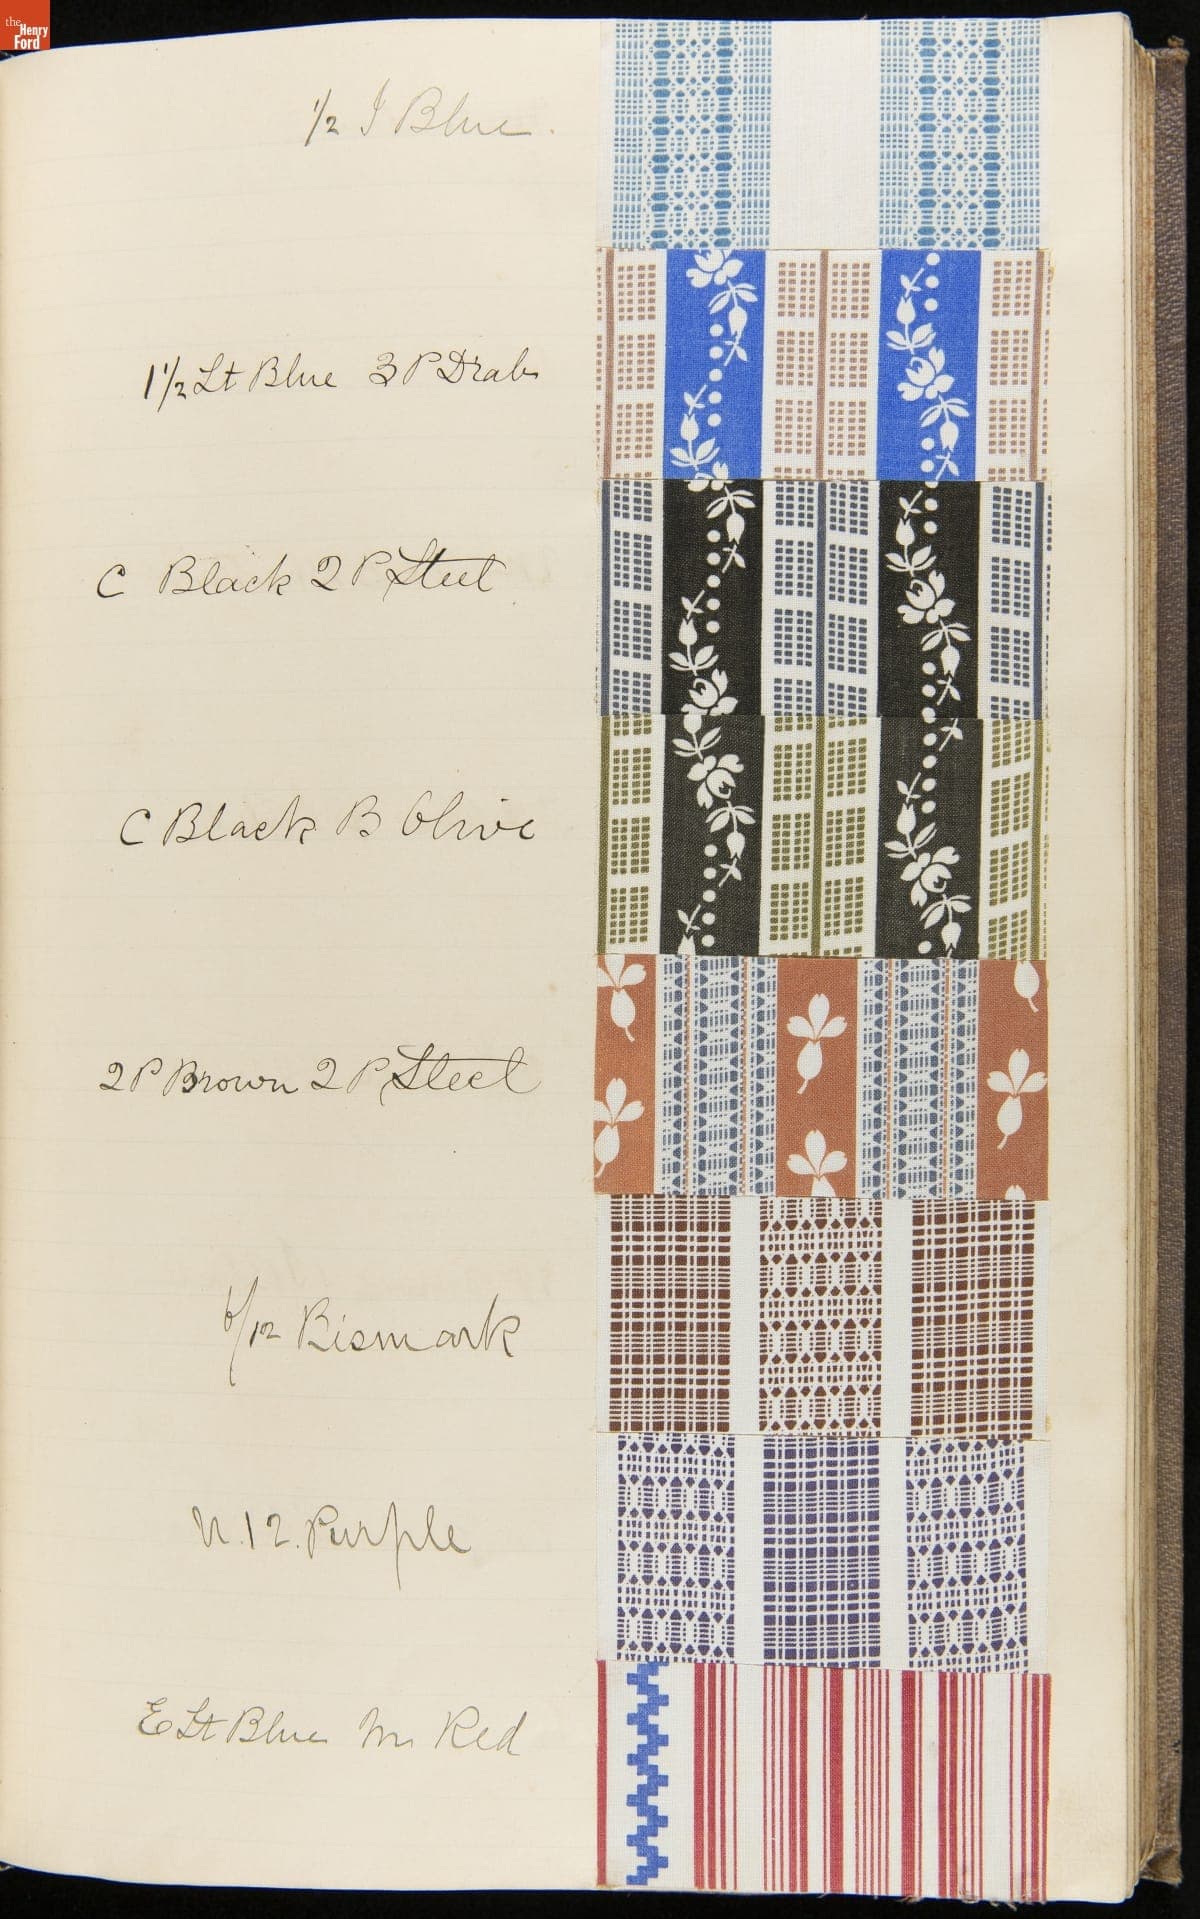 the
Henry
Ford
1/2 I Blue.
1 1/2 Lt Blue 3 P Drab
C Black 2 P Steel
C Black B Olive
2 P Brown 2 P Steel
6/12 Bismark
N. 12. Purple
E Lt Blue M Red